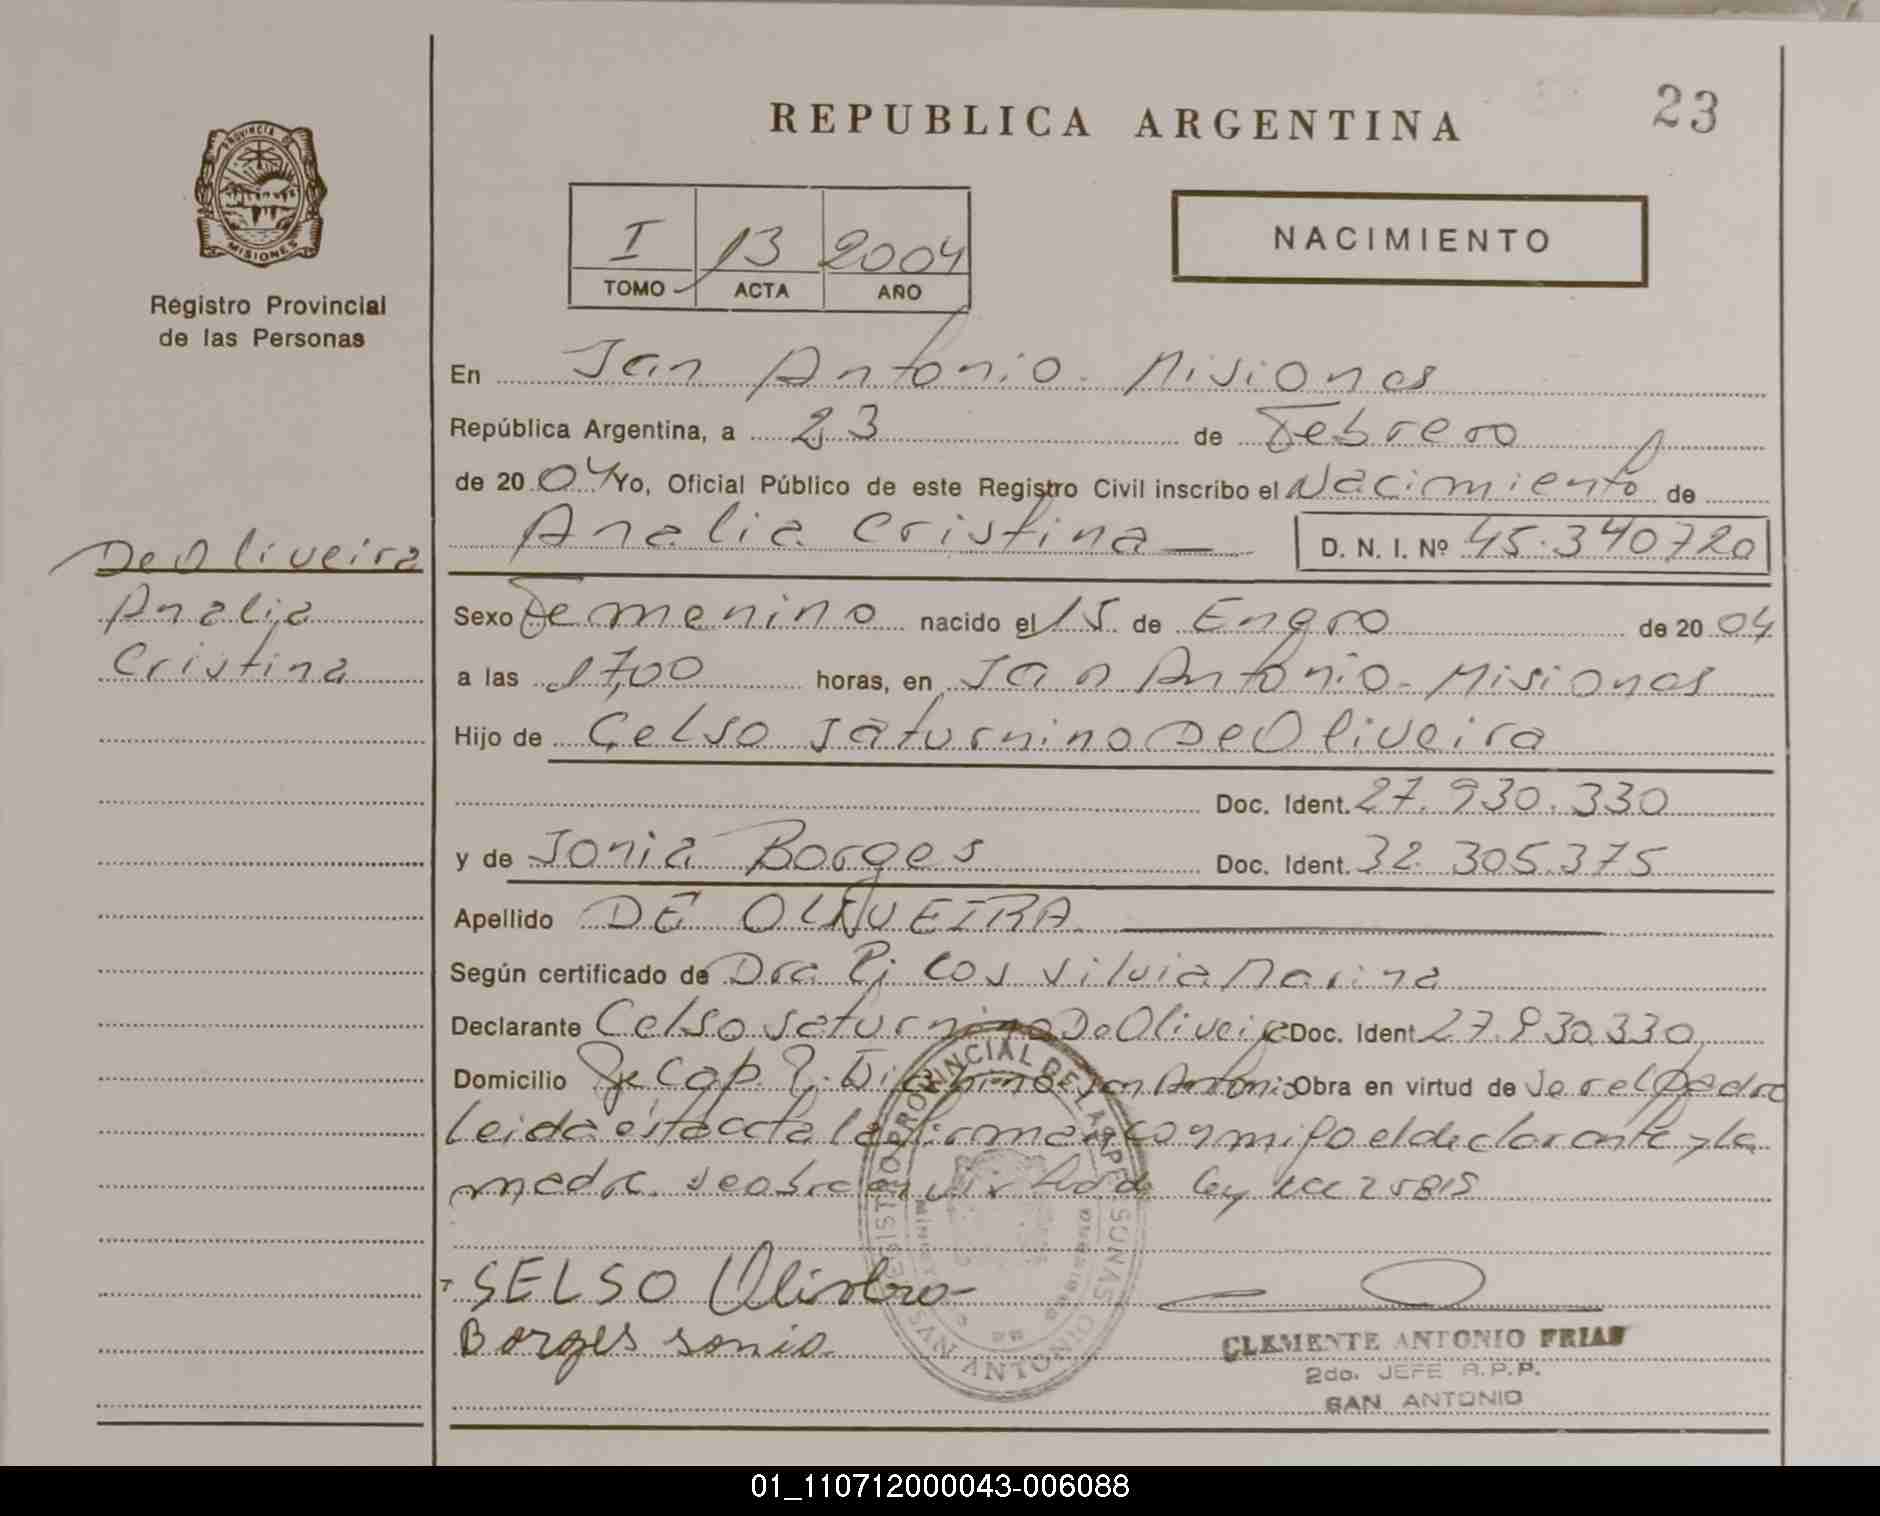 23
REPUBLICA ARGENTINA
PROVINCIA DE
MISIONES
Registro Provincial
de las Personas
I 13 2004
TOMO ACTA AÑO
NACIMIENTO
En San Antonio - Misiones
República Argentina, a 23 de Febrero
de 20 04 Yo, Oficial Público de este Registro Civil inscribo el Nacimiento de
Analia Cristina D. N. I. Nº 45.340720
De Oliveira
Analia
Cristina
Sexo Femenino nacido el 15 de Enero de 20 04
a las 17,00 horas, en San Antonio - Misiones
Hijo de Celso Saturnino De Oliveira
Doc. Ident. 27.930.330
y de Sonia Borges Doc. Ident. 32.305.375
Apellido DE OLIVEIRA
Según certificado de Dra Silvia Marina
Declarante Celso Saturnino De Oliveira Doc. Ident. 27.930.330
Domicilio San Antonio Obra en virtud de Ser el Padre
Leida esta acta la firman conmigo el declarante y la
madre. se obra en virtud de Ley 25819
SELSO
Borges sonia
REGISTRO PROVINCIAL DE LAS PERSONAS
SAN ANTONIO
CLEMENTE ANTONIO FRIAS
2do. JEFE R.P.P.
SAN ANTONIO
01_110712000043-006088